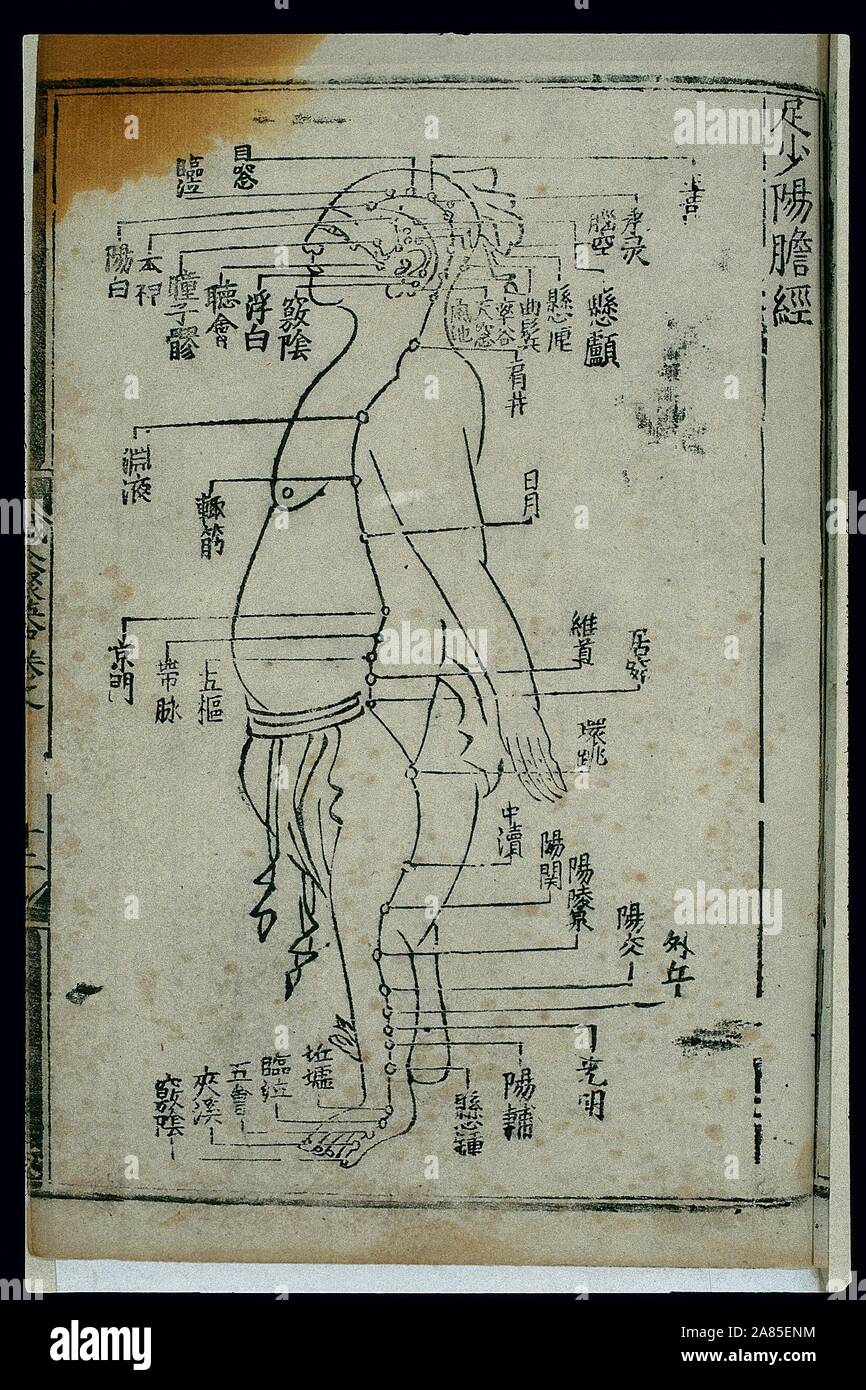 足少陽膽經
承灵
腦空
懸顱
懸厘
曲鬂
率谷
天窓
肩井
目窓
臨泣
陽白
本神
瞳子髎
聽會
浮白
竅陰
淵液
輒筋
日月
京門
帯脉
五樞
維道
居髎
環跳
中瀆
陽関
陽陵泉
陽交
外丘
光明
陽輔
懸鍾
坵墟
臨泣
五會
夾溪
竅陰
alamy
alamy
Image ID: 2A85ENM
www.alamy.com